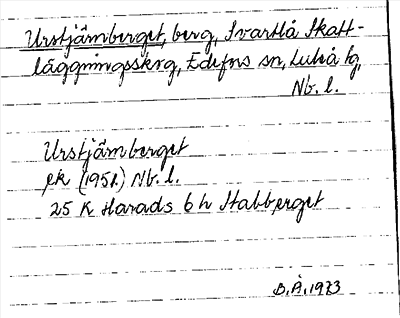 Urstjämberget, berg, Svartlå Skatt-
läggningsskrg, Edefors sn, Luleå fg,
Nb. l.
Urstjämberget
ek (1951) Nb. l.
25 K Harads 6 h Stabberget
B.Å. 1973